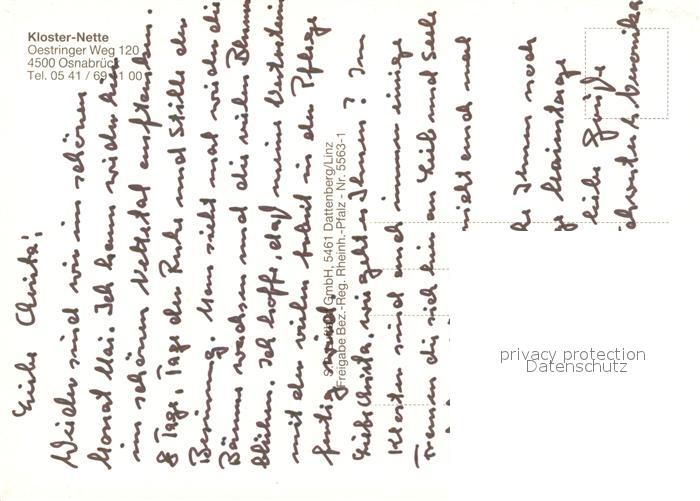 Kloster-Nette
Oestringer Weg 120
4500 Osnabrück
Tel. 05 41 / 69 1 00
Liebe Christa!
Wieder sind wir im schönen
Monat Mai. Ich kann wieder hier
im schönen Nettetal auftanken.
8 Tage, Tage der Ruhe und Stille der
Besinnung. Man sieht mal wieder die
Bäume wachsen und die vielen Blumen
blühen. Ich hoffe, daß meine
mit der vielen Arbeit in der Pflege
fertig wird.
Liebe Christa, wie geht es Ihnen? Im
Kloster sind auch immer einige
Frauen die sich hier an Leib und Seele
nicht auch mal
Ihnen noch
Maientage
liebe Grüße
Veronika
GmbH, 5461 Dattenberg/Linz
Freigabe Bez.-Reg. Rheinh.-Pfalz - Nr. 5563-1
privacy protection
Datenschutz